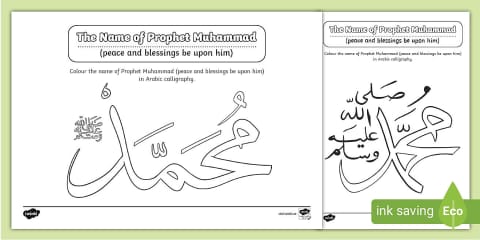 The Name of Prophet Muhammad
(peace and blessings be upon him)
Colour the name of Prophet Muhammad (peace and blessings be upon him)
in Arabic calligraphy.
محمد
صلى الله عليه وسلم
twinkl
The Name of Prophet Muhammad
(peace and blessings be upon him)
Colour the name of Prophet Muhammad (peace and blessings be upon him)
in Arabic calligraphy.
صلى
الله
عليه
وسلم
محمد
ink saving
Eco